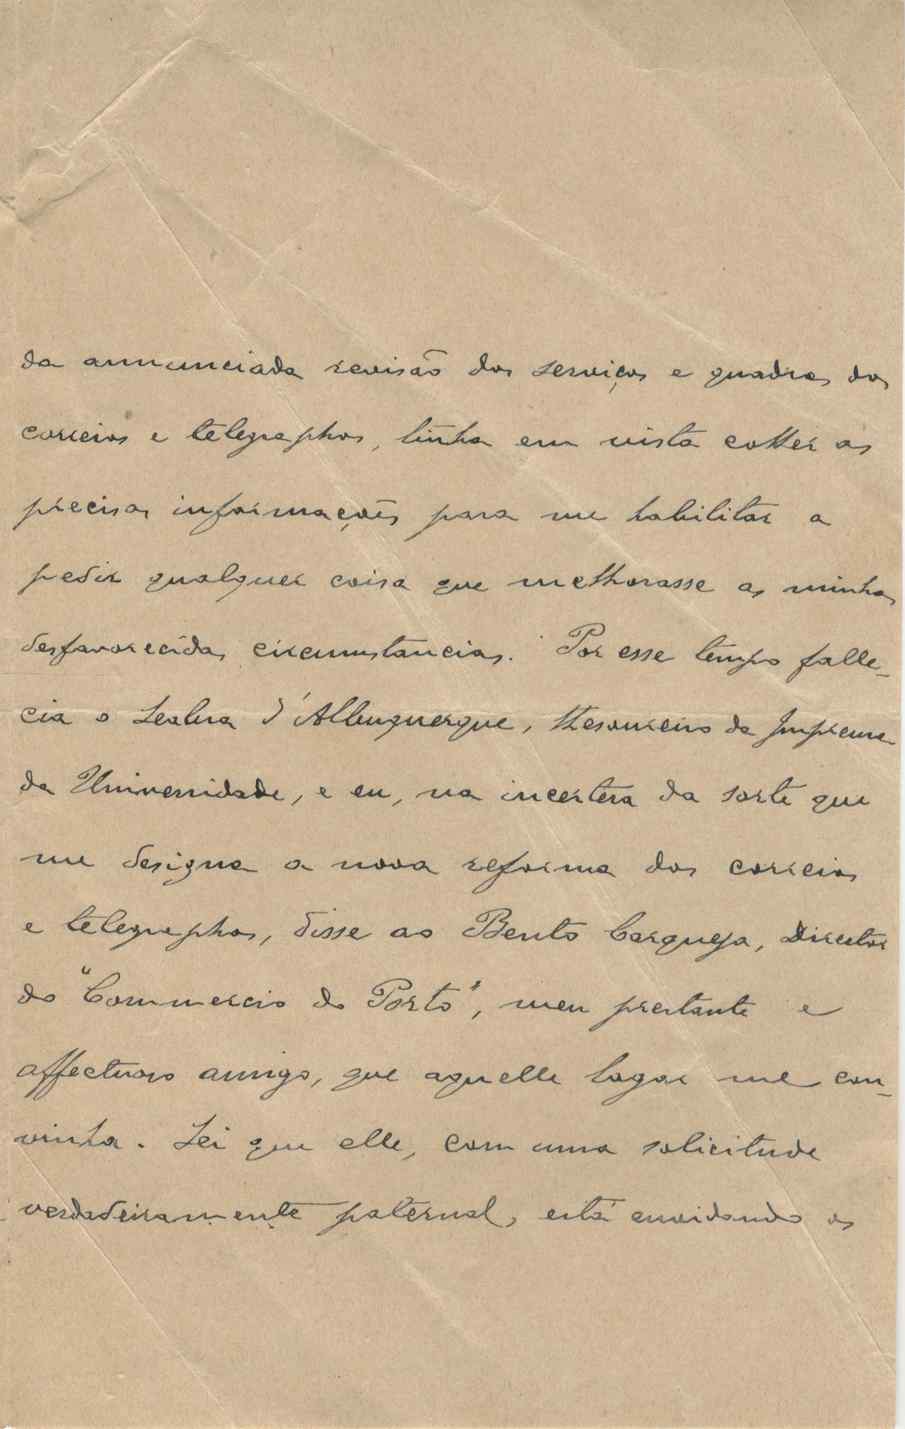 da annunciada revisão dos serviços e quadros dos
correios e telegraphos, tinha em vista colher as
precisas informações para me habilitar a
pedir qualquer coisa que melhorasse as minhas
desfavorecidas circumstancias. Por esse tempo falle-
cia o Seabra d'Albuquerque, thesoureiro da Imprensa
da Universidade, e eu, na incerteza da sorte que
me designa a nova reforma dos correios
e telegraphos, disse ao Bento Carqueja, Director
do "Commercio do Porto", meu prestante e
affectuoso amigo, que aquelle logar me con-
vinha. Sei que elle, com uma solicitude
verdadeiramente paternal, está envidando os